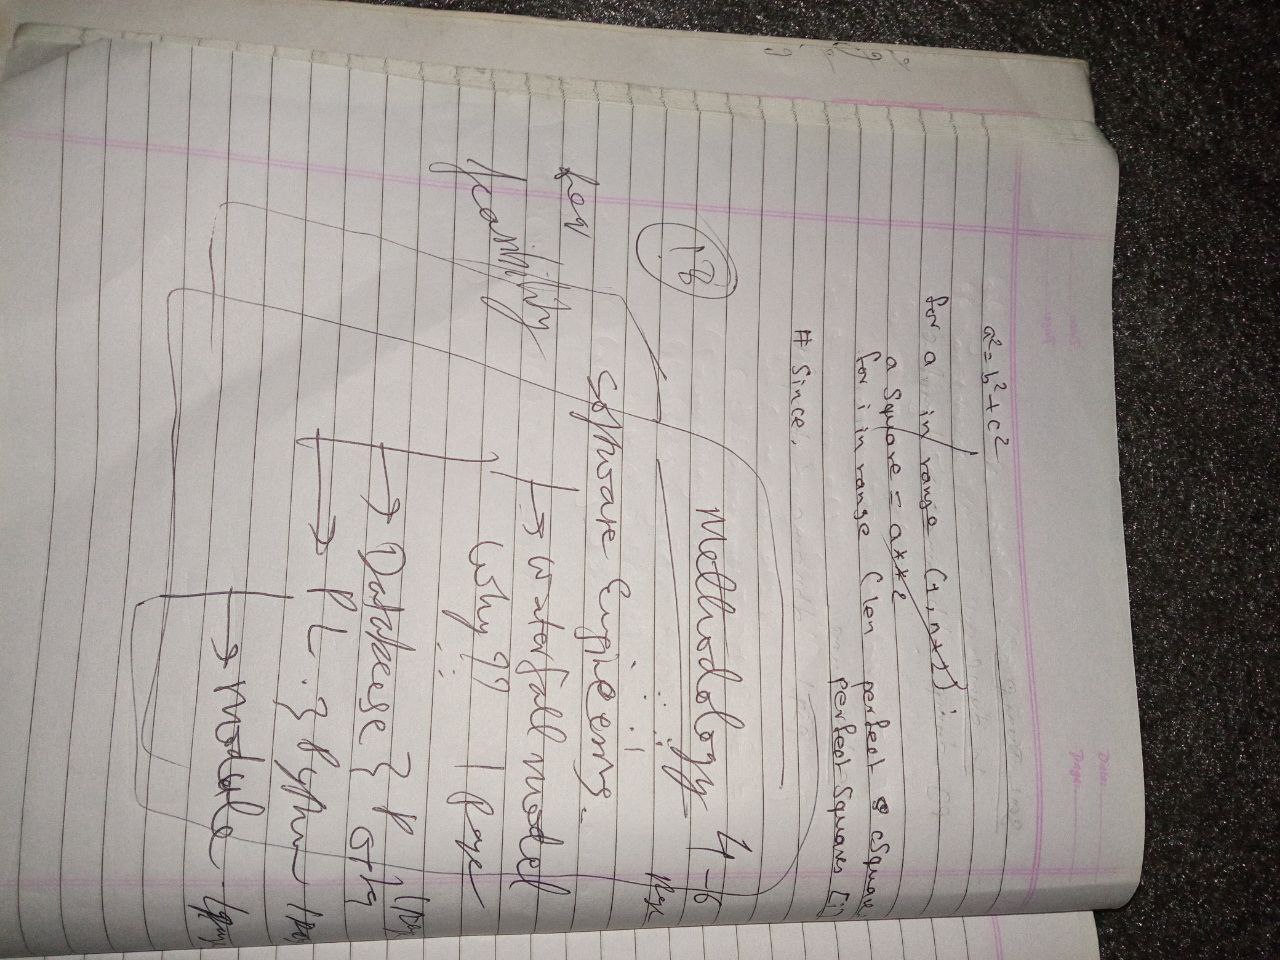 Date:
Page:
a² = b² + c²
for a in range (1, n+1) :
a Square = a**2
for i in range (len perfect cSquare
perfect Squares [i]
# Since,
18
Methodology 4-6
page
Software Engineering
feasibility
→ Waterfall model
Why ?? 1 page
→ Database }
→ PL. } Python
→ module